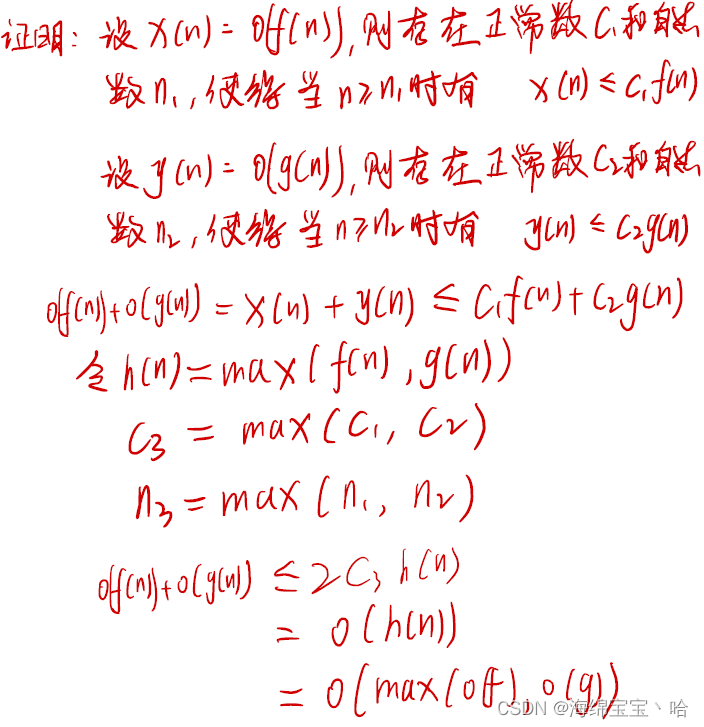 证明: 设 x(n) = O(f(n)), 则存在正常数 C₁ 和自然
数 n₁, 使得当 n ≥ n₁ 时有 x(n) ≤ C₁f(n)
设 y(n) = O(g(n)), 则存在正常数 C₂ 和自然
数 n₂, 使得当 n ≥ n₂ 时有 y(n) ≤ C₂g(n)
O(f(n))+O(g(n)) = x(n) + y(n) ≤ C₁f(n) + C₂g(n)
令 h(n) = max(f(n), g(n))
C₃ = max(C₁, C₂)
n₃ = max(n₁, n₂)
O(f(n))+O(g(n)) ≤ 2C₃h(n)
= O(h(n))
= O(max(O(f), O(g))
CSDN @海绵宝宝丶哈